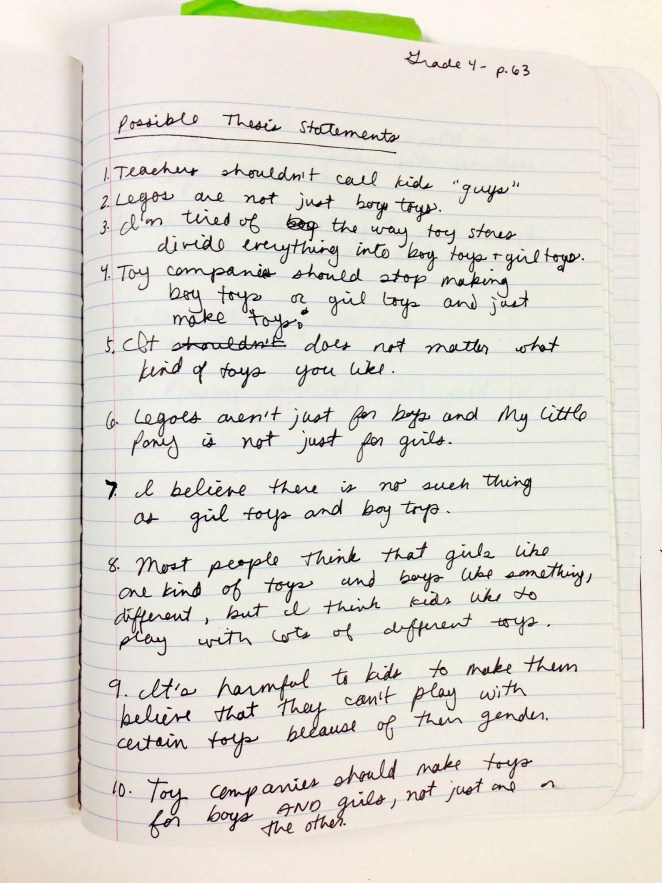 Grade 4 - p.63
Possible Thesis Statements
1. Teachers shouldn't call kids "guys"
2. Legos are not just boy toys.
3. I'm tired of the way toy stores
divide everything into boy toys + girl toys.
4. Toy companies should stop making
boy toys or girl toys and just
make "toys."
5. It shouldn't does not matter what
kind of toys you like.
6. Legoes aren't just for boys and My Little
Pony is not just for girls.
7. I believe there is no such thing
as girl toys and boy toys.
8. Most people think that girls like
one kind of toys and boys like something,
different, but I think kids like to
play with lots of different toys.
9. It's harmful to kids to make them
believe that they can't play with
certain toys because of their gender.
10. Toy companies should make toys
for boys AND girls, not just one or
the other.